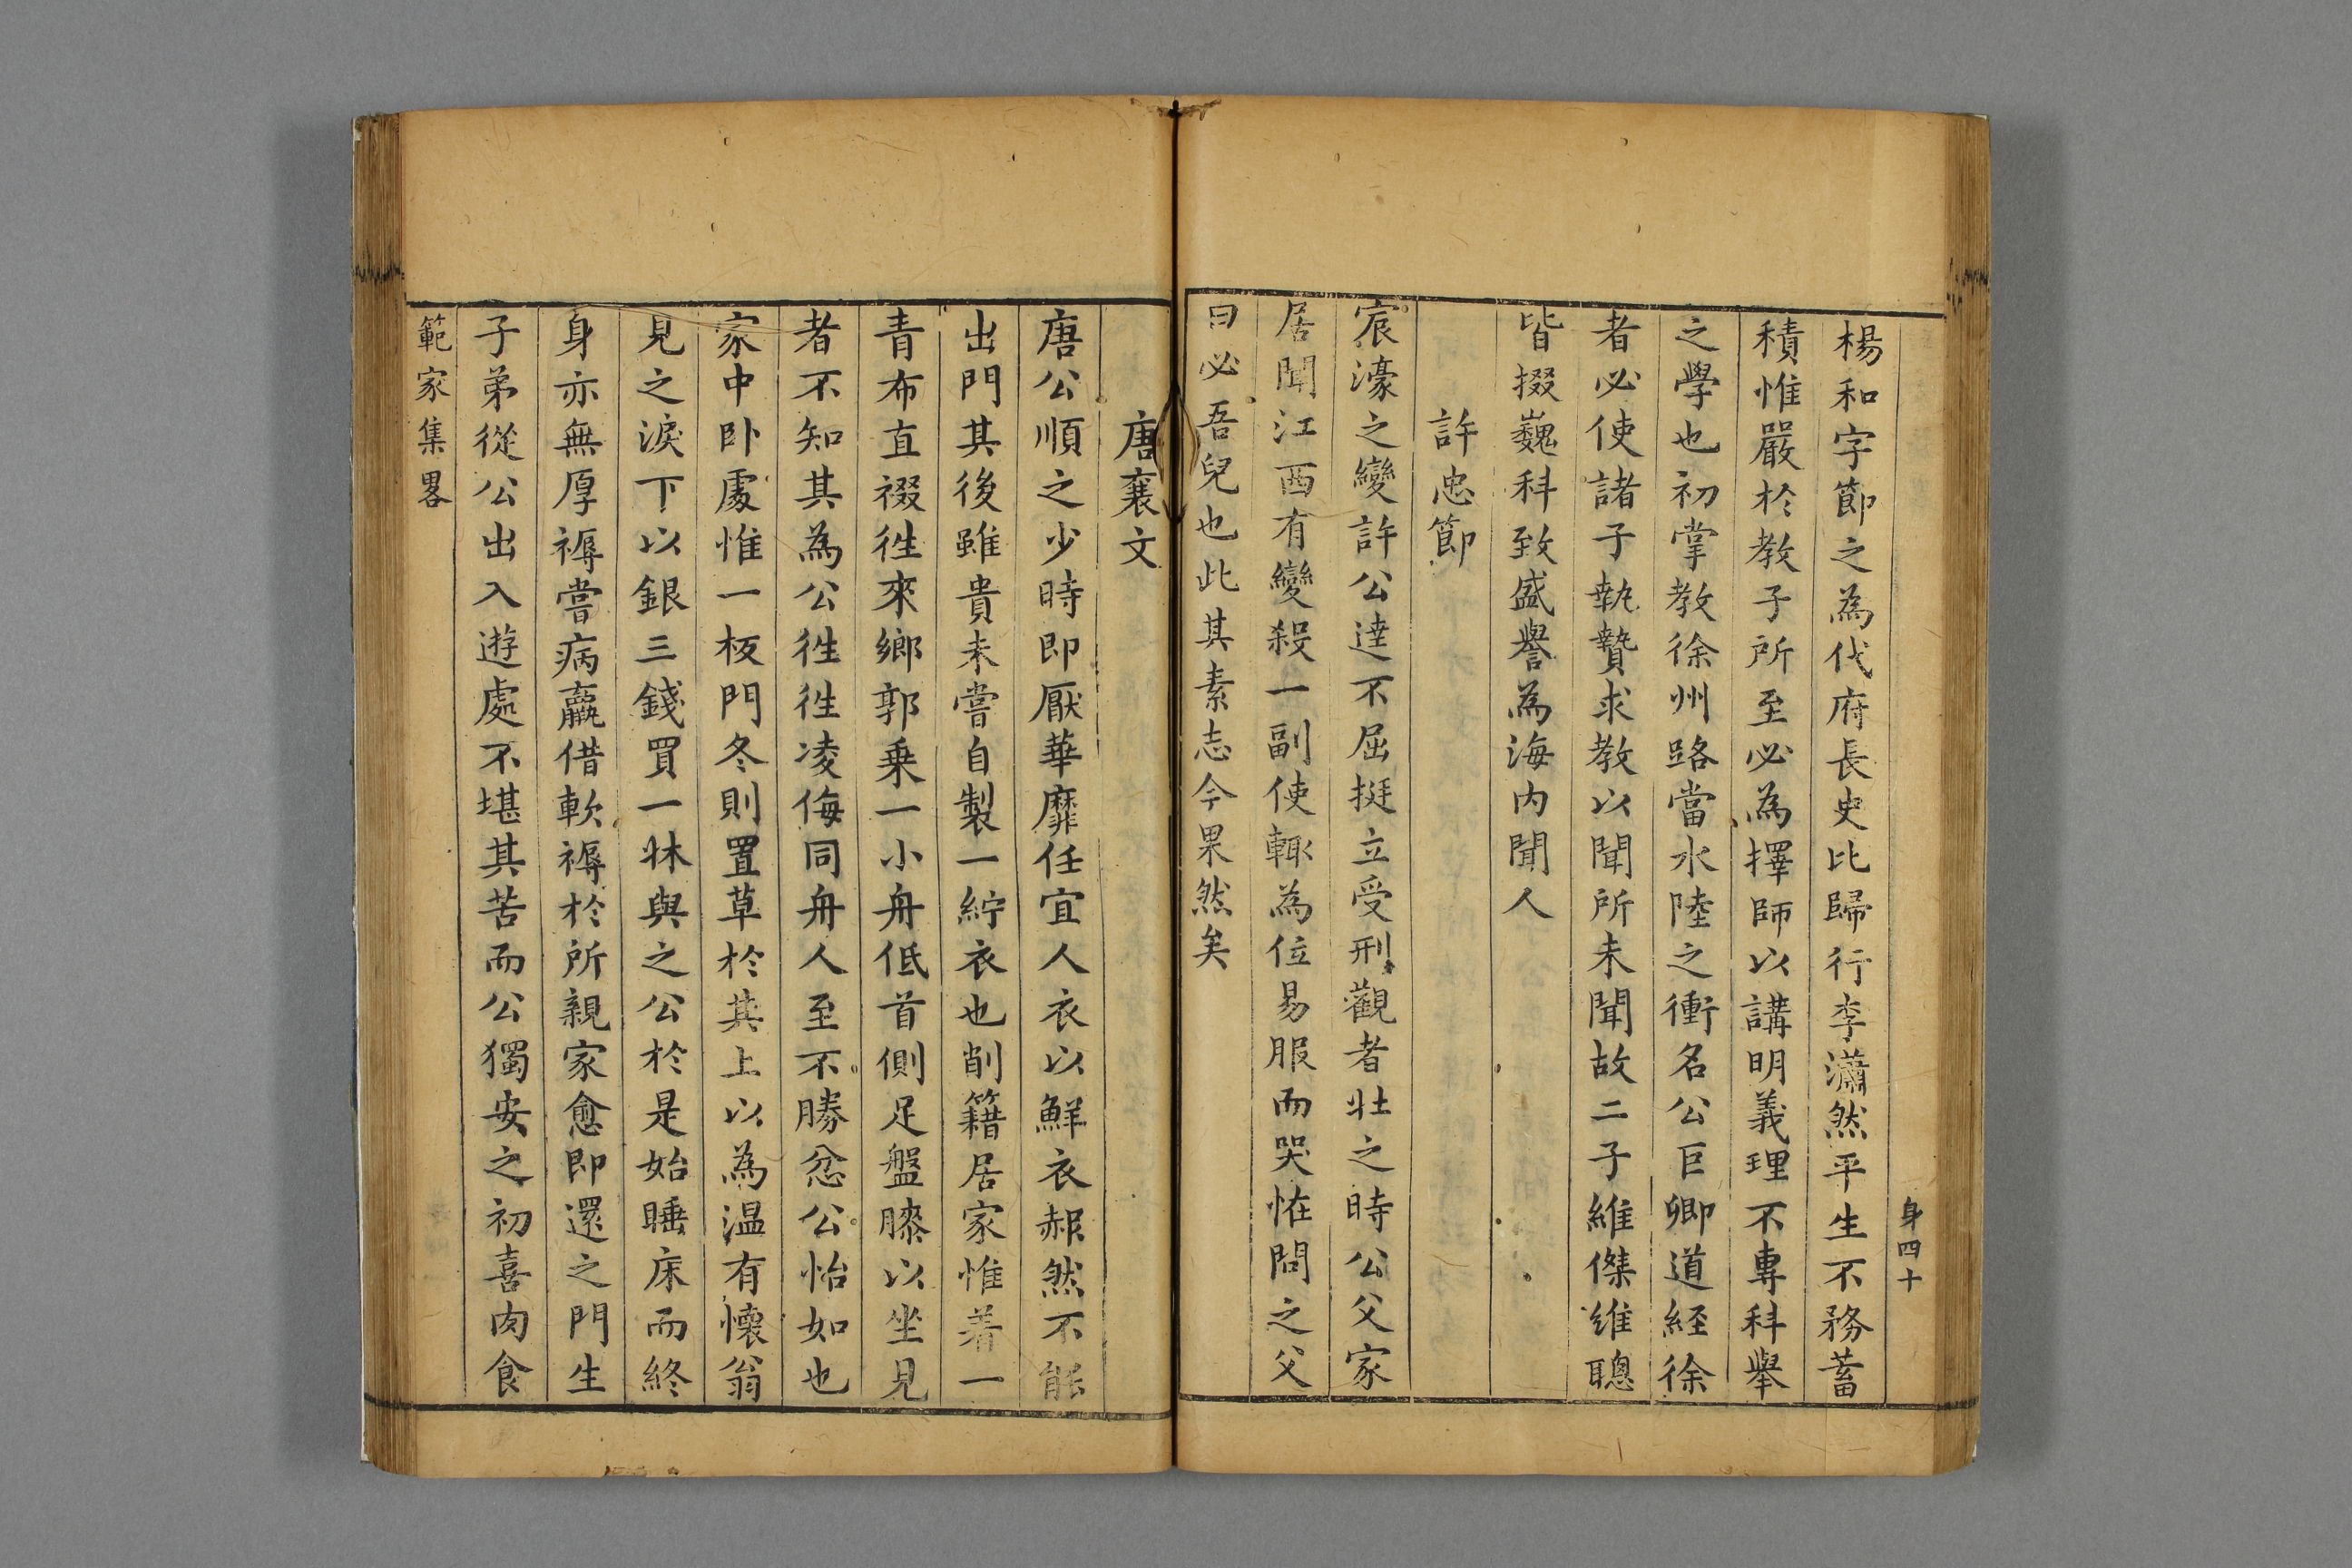 身四十
楊和字節之為代府長史比歸行李瀟然平生不務蓄
積惟嚴於教子所至必為擇師以講明義理不專科舉
之學也初掌教徐州路當水陸之衝名公巨卿道経徐
者必使諸子執贄求教以聞所未聞故二子維傑維聰
皆掇巍科致盛譽為海內聞人
許忠節
宸濠之變許公逹不屈挺立受刑觀者壯之時公父家
居聞江西有變殺一副使輒為位易服而哭恠問之父
曰必吾兒也此其素志今果然矣
唐襄文
唐公順之少時即厭華靡任宜人衣以鮮衣赧然不能
出門其後雖貴未嘗自製一紵衣也削籍居家惟着一
青布直裰徃來鄉郭乗一小舟低首側足盤膝以坐見
者不知其為公徃徃凌侮同舟人至不勝忿公怡如也
家中卧處惟一板門冬則置草於其上以為温有懷翁
見之淚下以銀三錢買一牀與之公於是始睡床而終
身亦無厚褥嘗病羸借軟褥於所親家愈即還之門生
子弟從公出入遊處不堪其苦而公獨安之初喜肉食
範家集畧